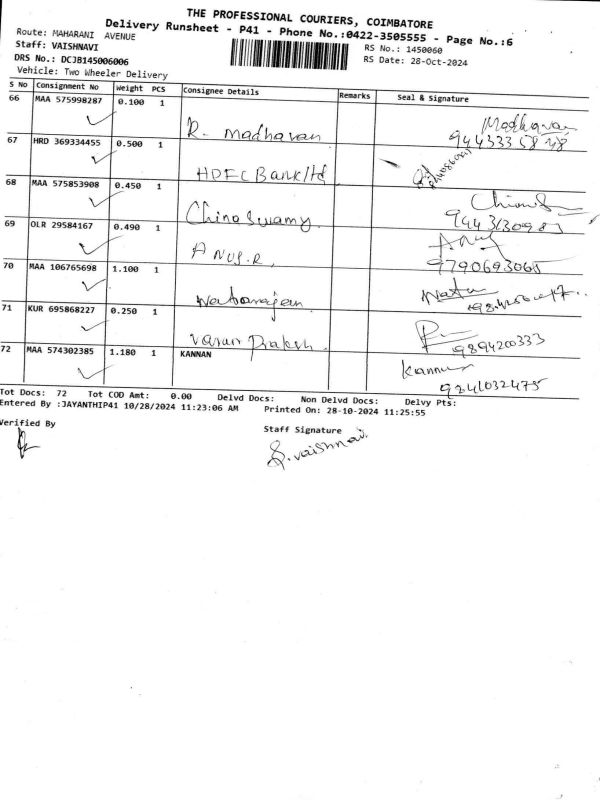 THE PROFESSIONAL COURIERS, COIMBATORE
Delivery Runsheet - P41 - Phone No.:0422-3505555 - Page No.:6
Route: MAHARANI AVENUE
RS No.: 1450060
Staff: VAISHNAVI
RS Date: 28-Oct-2024
DRS No.: DCJB145006006
Vehicle: Two Wheeler Delivery
S No Consignment No Weight PCS Consignee Details Remarks Seal & Signature
66 MAA 575998287 0.100 1 R. Madhavan Madhavan
67 HRD 369334455 0.500 1 HDFC Bank ltd
68 MAA 575853908 0.450 1 Chinaswamy
69 OLR 29584167 0.490 1
9790693065
70 MAA 106765698 1.100 1 Natarajan
71 KUR 695868227 0.250 1 Varun Prakesh
9894200333
72 MAA 574302385 1.180 1 KANNAN
9841032475
Tot Docs: 72 Tot COD Amt: 0.00 Delvd Docs: Non Delvd Docs: Delvy Pts:
Entered By :JAYANTHIP41 10/28/2024 11:23:06 AM Printed On: 28-10-2024 11:25:55
Verified By
Staff Signature
S. Vaishnavi